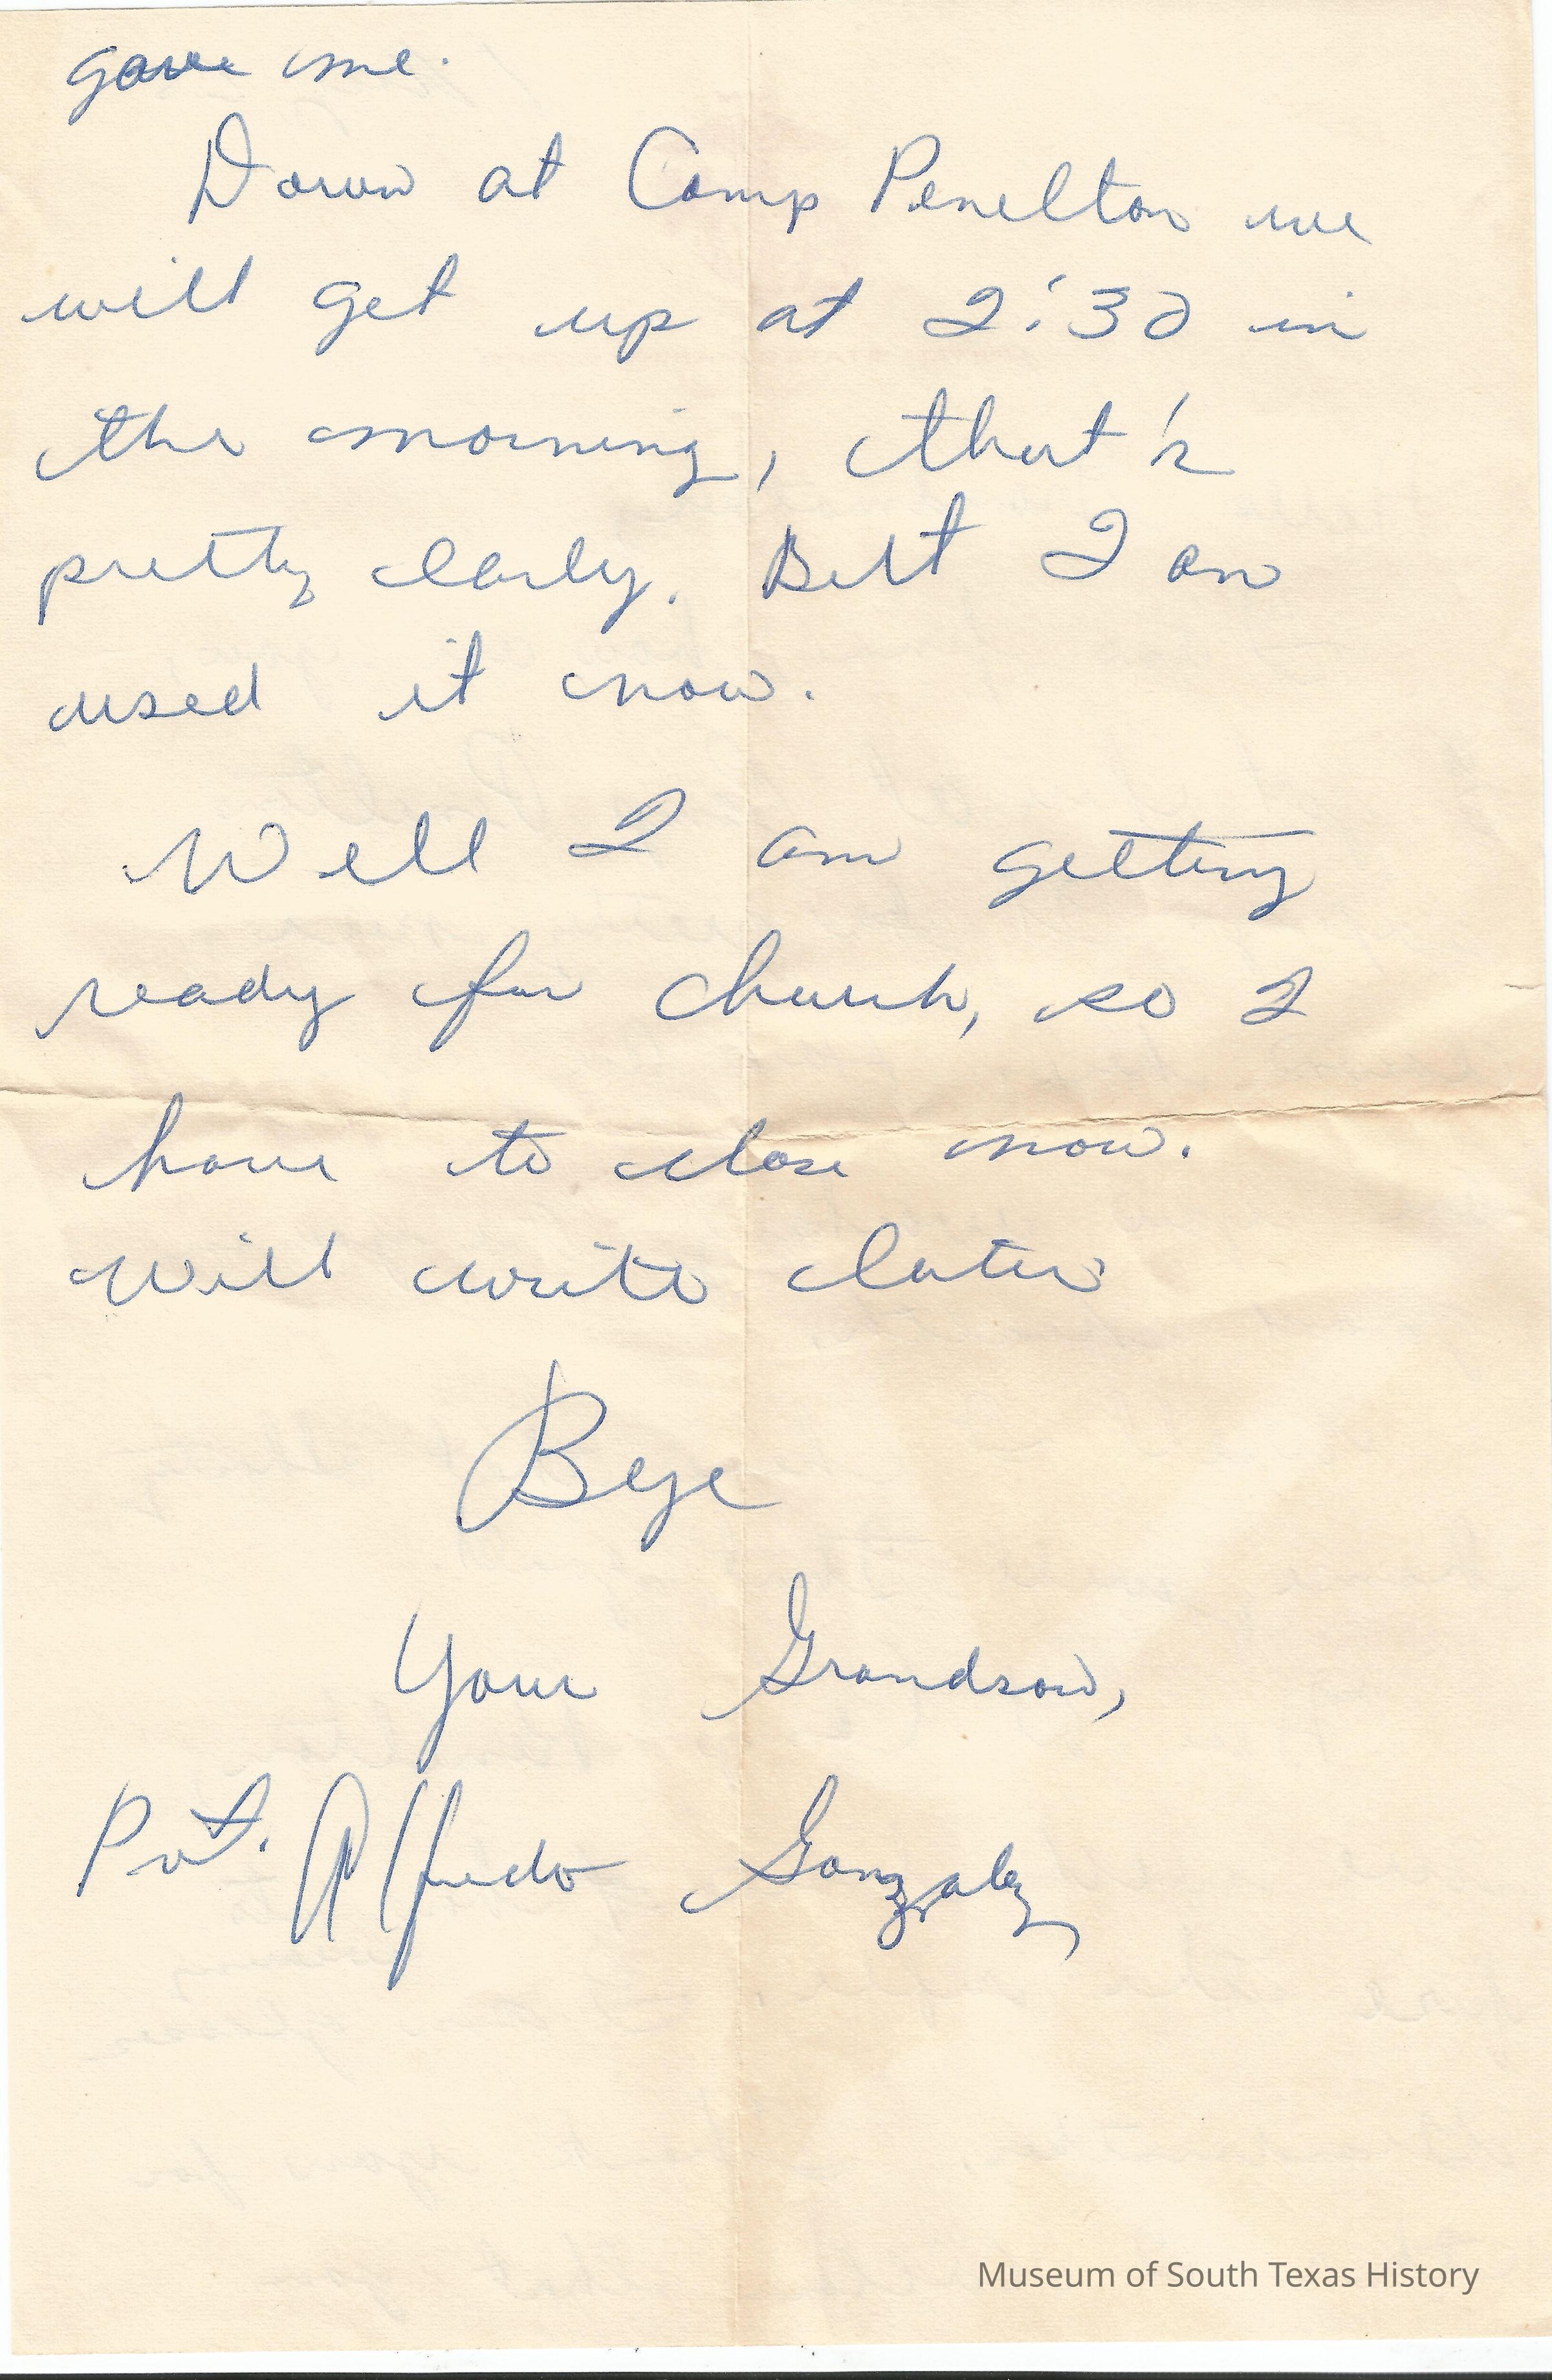 gave me.
Down at Camp Penelton we
will get up at 2:30 in
the morning, that's
pretty early. But I am
used it now.
Well I am getting
ready for church, so I
have to close now.
Will write later
Bye
Your Grandson,
Pvt. Alfredo Gonzalez
Museum of South Texas History